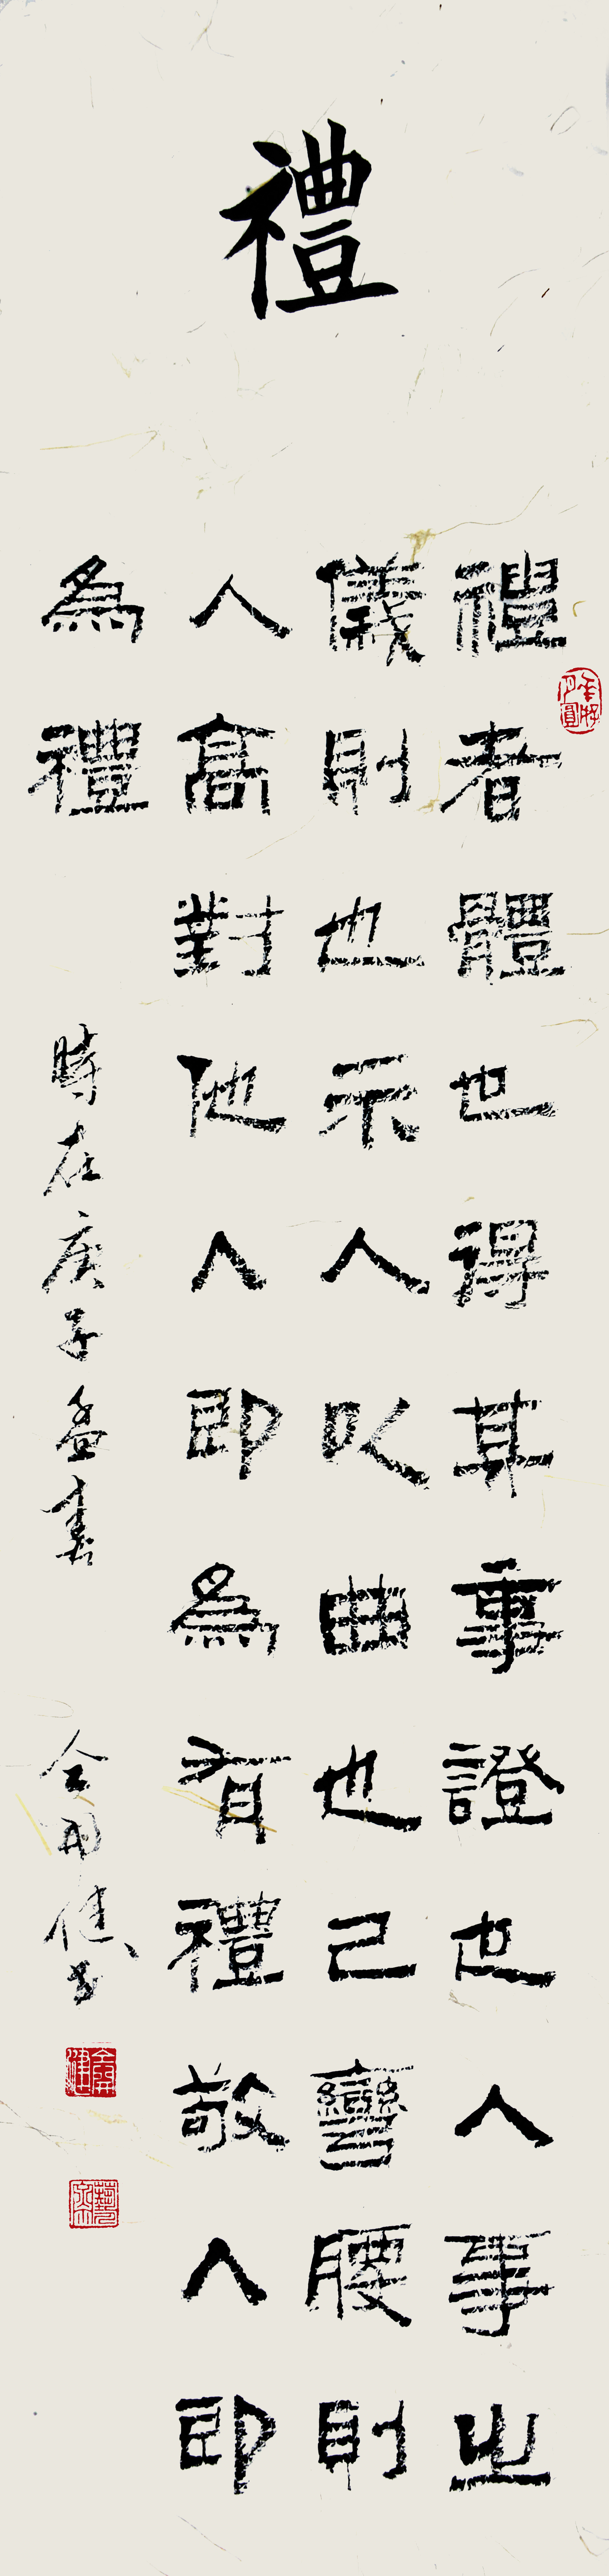 禮
禮者體也得其事證也人事之
儀則也示人以曲也己彎腰則
人高對他人即為有禮敬人即
為禮
時在庚子孟春
全開健書